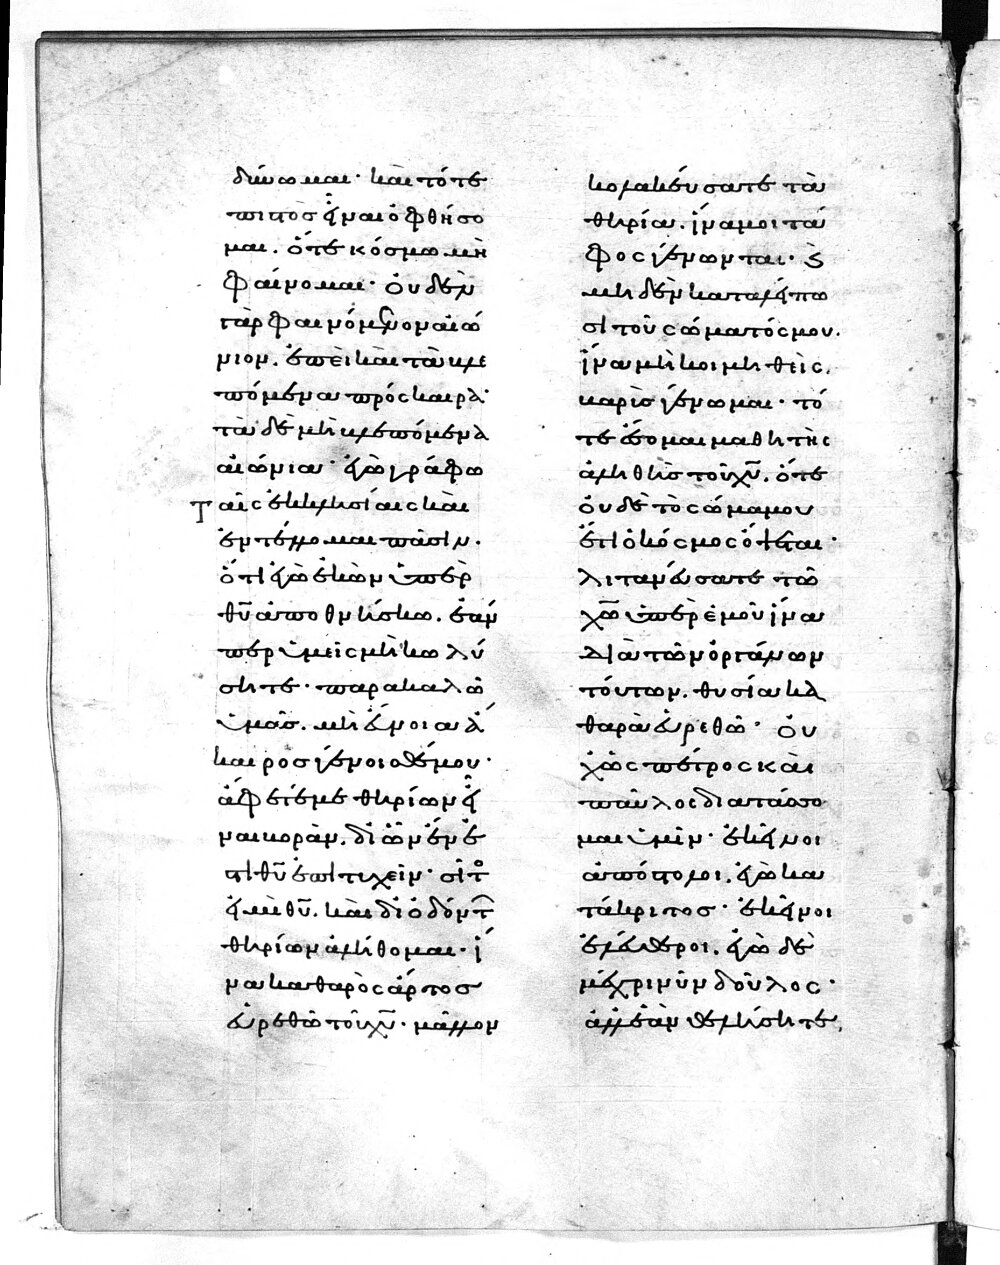 δύνωμαι· καὶ τότε
πιστὸς εἶναι ὀφθήσο
μαι. ὅτε κόσμω μὴ
φαίνομαι· οὐδὲν
γὰρ φαινόμενον αἰώ
νιον. ἐπεὶ καὶ τὰ βλε
πόμενα πρόσκαιρα·
τὰ δὲ μὴ βλεπόμενα
αἰώνια· ἐγὼ γράφω
Ταῖς ἐκκλησίαις καὶ
ἐντέλλομαι πᾶσιν.
ὅτι ἐγὼ ἑκὼν ὑπὲρ
θῦ ἀποθνήσκω. ἐάν
περ ὑμεῖς μὴ κωλύ
σητε· παρακαλῶ
ὑμᾶς. μὴ εὔνοια ἄ
καιρος γένοισθέ μου·
ἄφετέ με θηρίων εἶ
ναι βορὰν. δι ὧν ἔνε
στι θῦ ἐπιτυχεῖν· σῖτο
εἰμι θῦ. καὶ δι ὀδόντ
θηρίων ἀλήθομαι· ἵ
να καθαρὸς ἄρτος
εὑρεθῶ τοῦ χῦ· μᾶλλον
κολακεύσατε τὰ
θηρία. ἵνα μοι τά
φος γένωνται· καὶ
μηδὲν καταλίπω
σι τοῦ σώματός μου.
ἵνα μὴ κοιμηθεὶς.
βαρὺς γένωμαι· τό
τε ἔσομαι μαθητὴς
ἀληθὴς τοῦ χῦ. ὅτε
οὐδὲ τὸ σῶμα μου
ἔτι ὁ κόσμος ὄψεται·
λιτανεύσατε τῶ
χῶ ὑπὲρ ἐμοῦ ἵνα
διὰ τῶν ὀργάνων
τούτων. θυσία κα
θαρὰ εὑρεθῶ· οὐ
χ ὡς πέτρος καὶ
παῦλος διατάσσο
μαι ὑμῖν· ἐκεῖνοι
ἀπόστολοι. ἐγὼ κα
τάκριτος· ἐκεῖνοι
ἐλεύθεροι. ἐγὼ δὲ
μέχρι νῦν δοῦλος·
ἀλλ ἐὰν θελήσητε,